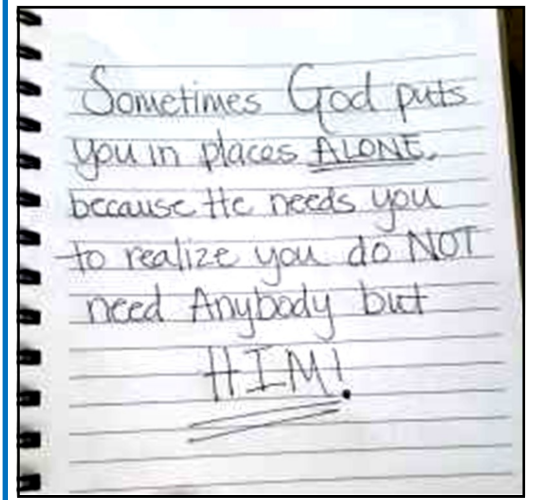 Sometimes God puts
you in places ALONE,
because He needs you
to realize you do NOT
need Anybody but
HIM!